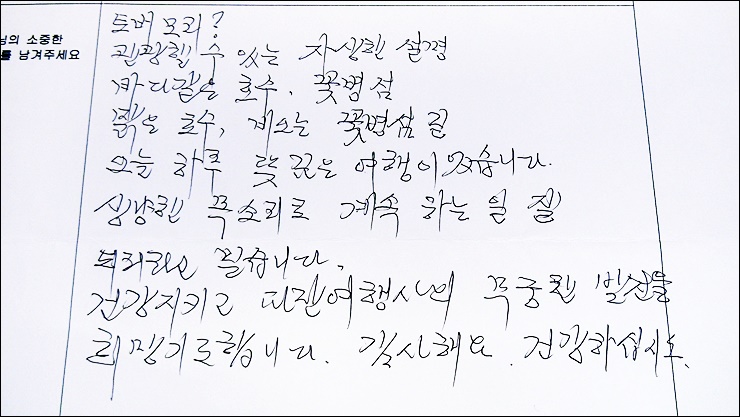 님의 소중한
를 남겨주세요
토버모리?
관광할 수 있는 자상한 설명
바다같은 호수, 꽃병섬
맑은 호수, 계소는 꽃병섬 길
오늘 하루 뜻깊은 여행이었습니다.
상냥한 목소리로 계속 하는 일 잘
되리라고 믿습니다.
건강지키고 여행사의 무궁한 발전을
희망기도합니다. 감사해요. 건강하십시오.